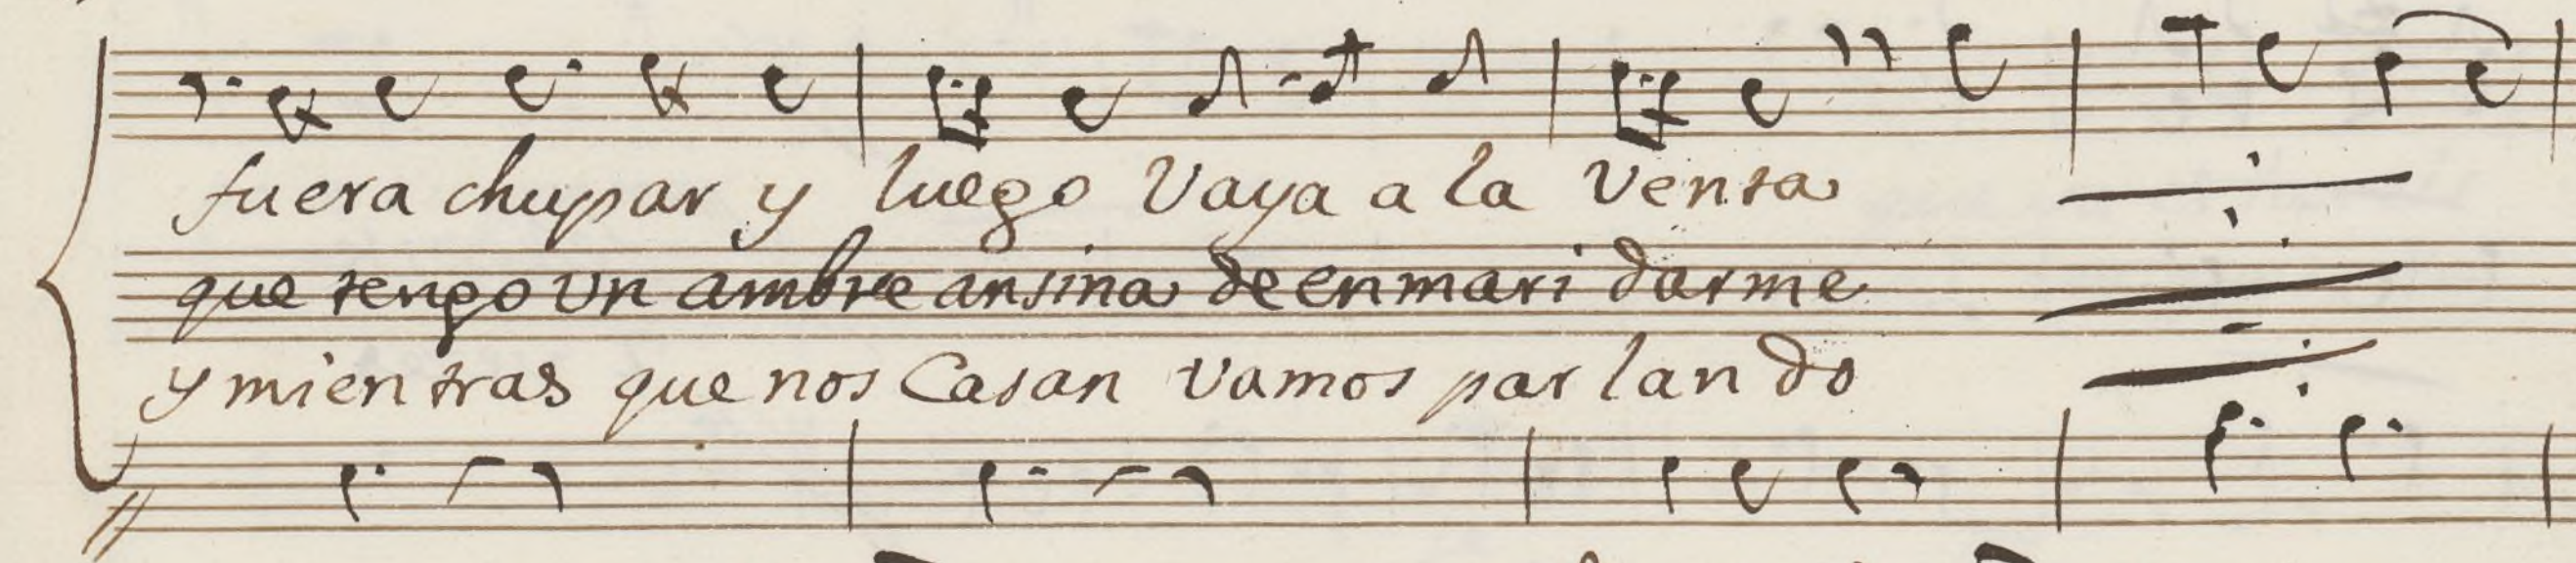 fuera chupar y luego Vaya a la Venta
que tengo un ambre ansina de enmari darme
y mientras que nos Casan vamos par lan do